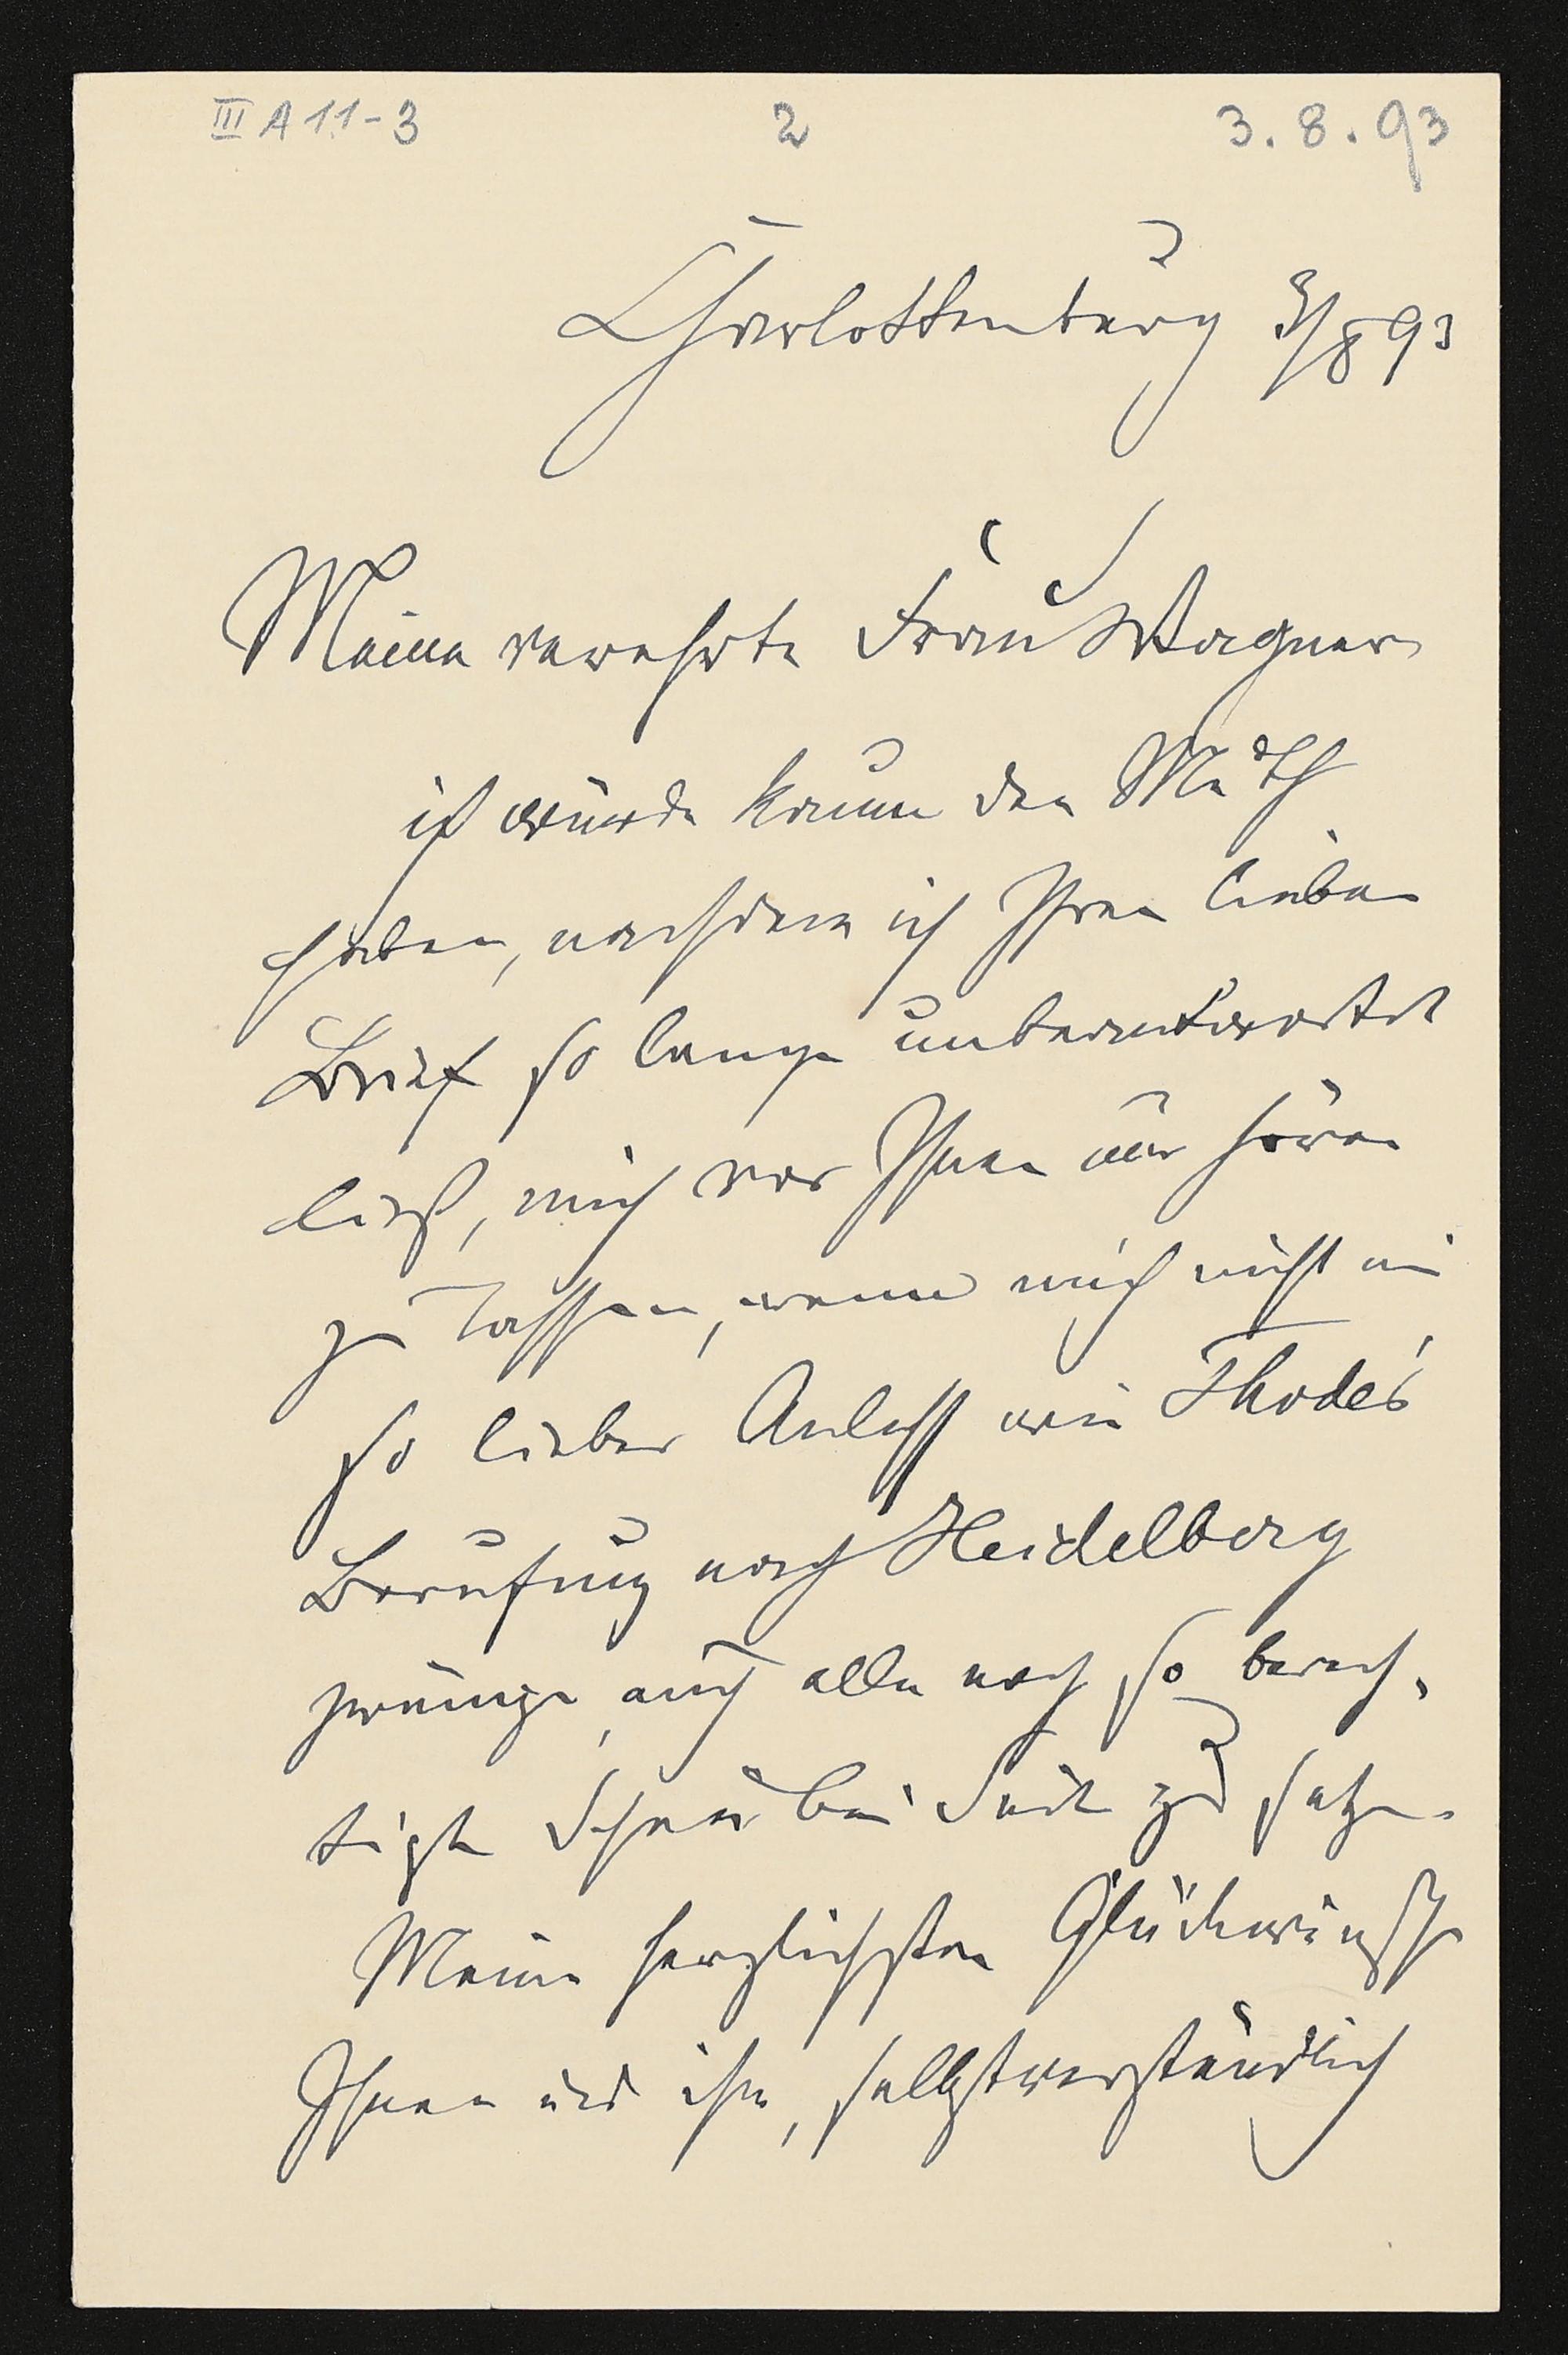 III A 11-3 2 3.8.93
Charlottenburg 3/8 93
Meine verehrte Frau Wagner
ich würde kaum den Muth
haben, nachdem ich Ihren lieben
Brief so lange unbeantwortet
ließ, mich vor Ihnen nur hören
zu lassen, wenn mich nicht ein
so lieber Anlaß wie Thode's
Berufung nach Heidelberg
zwänge, auch alle noch so berech-
tigte Scheu bei Seite zu setzen.
Meine herzlichsten Glückwünsche
Ihnen und ihm, selbstverständlich